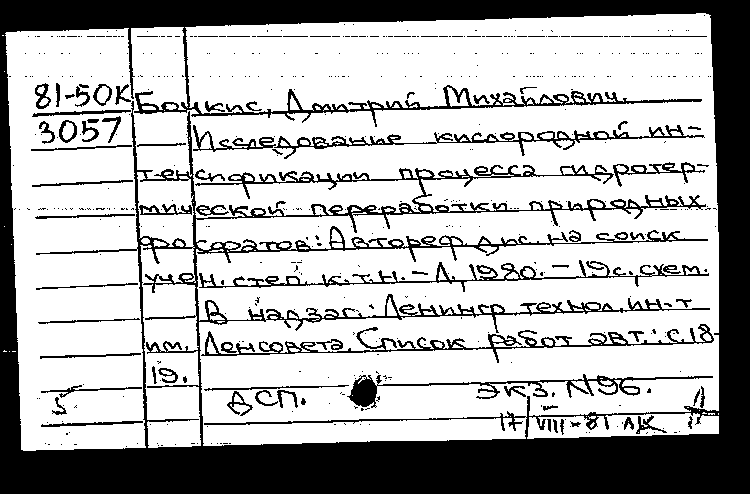 81-50К Бочкис, Дмитрий Михайлович.
3057 Исследование кислородной ин-
тенсификации процесса гидротер-
мической переработки природных
фосфатов: Автореф дис. на соиск
учен. степ. к.т.н. - Л., 1980. - 19с., схем.
В надзаг.: Ленингр технол. ин-т
им. Ленсовета. Список работ авт.: с.18-
19.
5 ДСП. экз. N96.
17/VIII-81